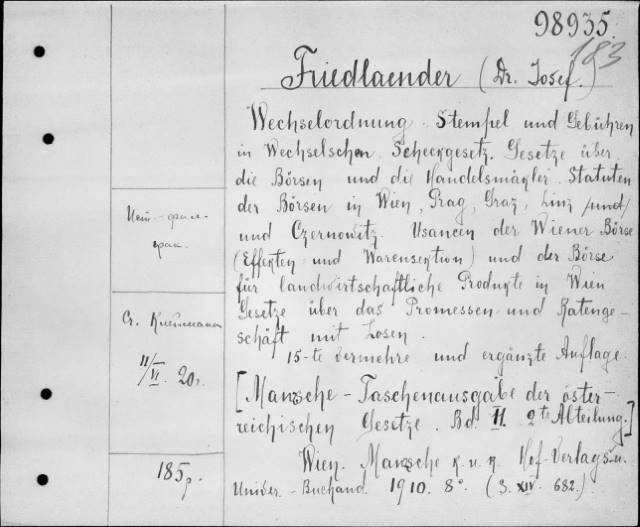 98935.
183
Friedlaender (Dr. Josef.)
Wechselordnung. Stempel und Gebühren
in Wechselschen, Scheckgesetz. Gesetze über
die Börsen und die Handelsmäkler. Statuten
der Börsen in Wien, Prag, Graz, Linz /und/
und Czernowitz. Usancen der Wiener Börse
(Effekten und Warensektion) und der Börse
für landwirtschaftliche Produkte in Wien
Gesetze über das Promessen und Ratenge-
schäft mit Losen.
15-te vermehre und ergänzte Auflage.
[Manzsche-Taschenausgabe der öster-
reichischen Gesetze. Bd. II. 2te Abteilung.]
Wien. Manzsche k. u. k. Hof-Verlags u.
Univer.-Buchand. 1910. 8°. (S. XIV. 682.)
11/VI. 20г.
185р.